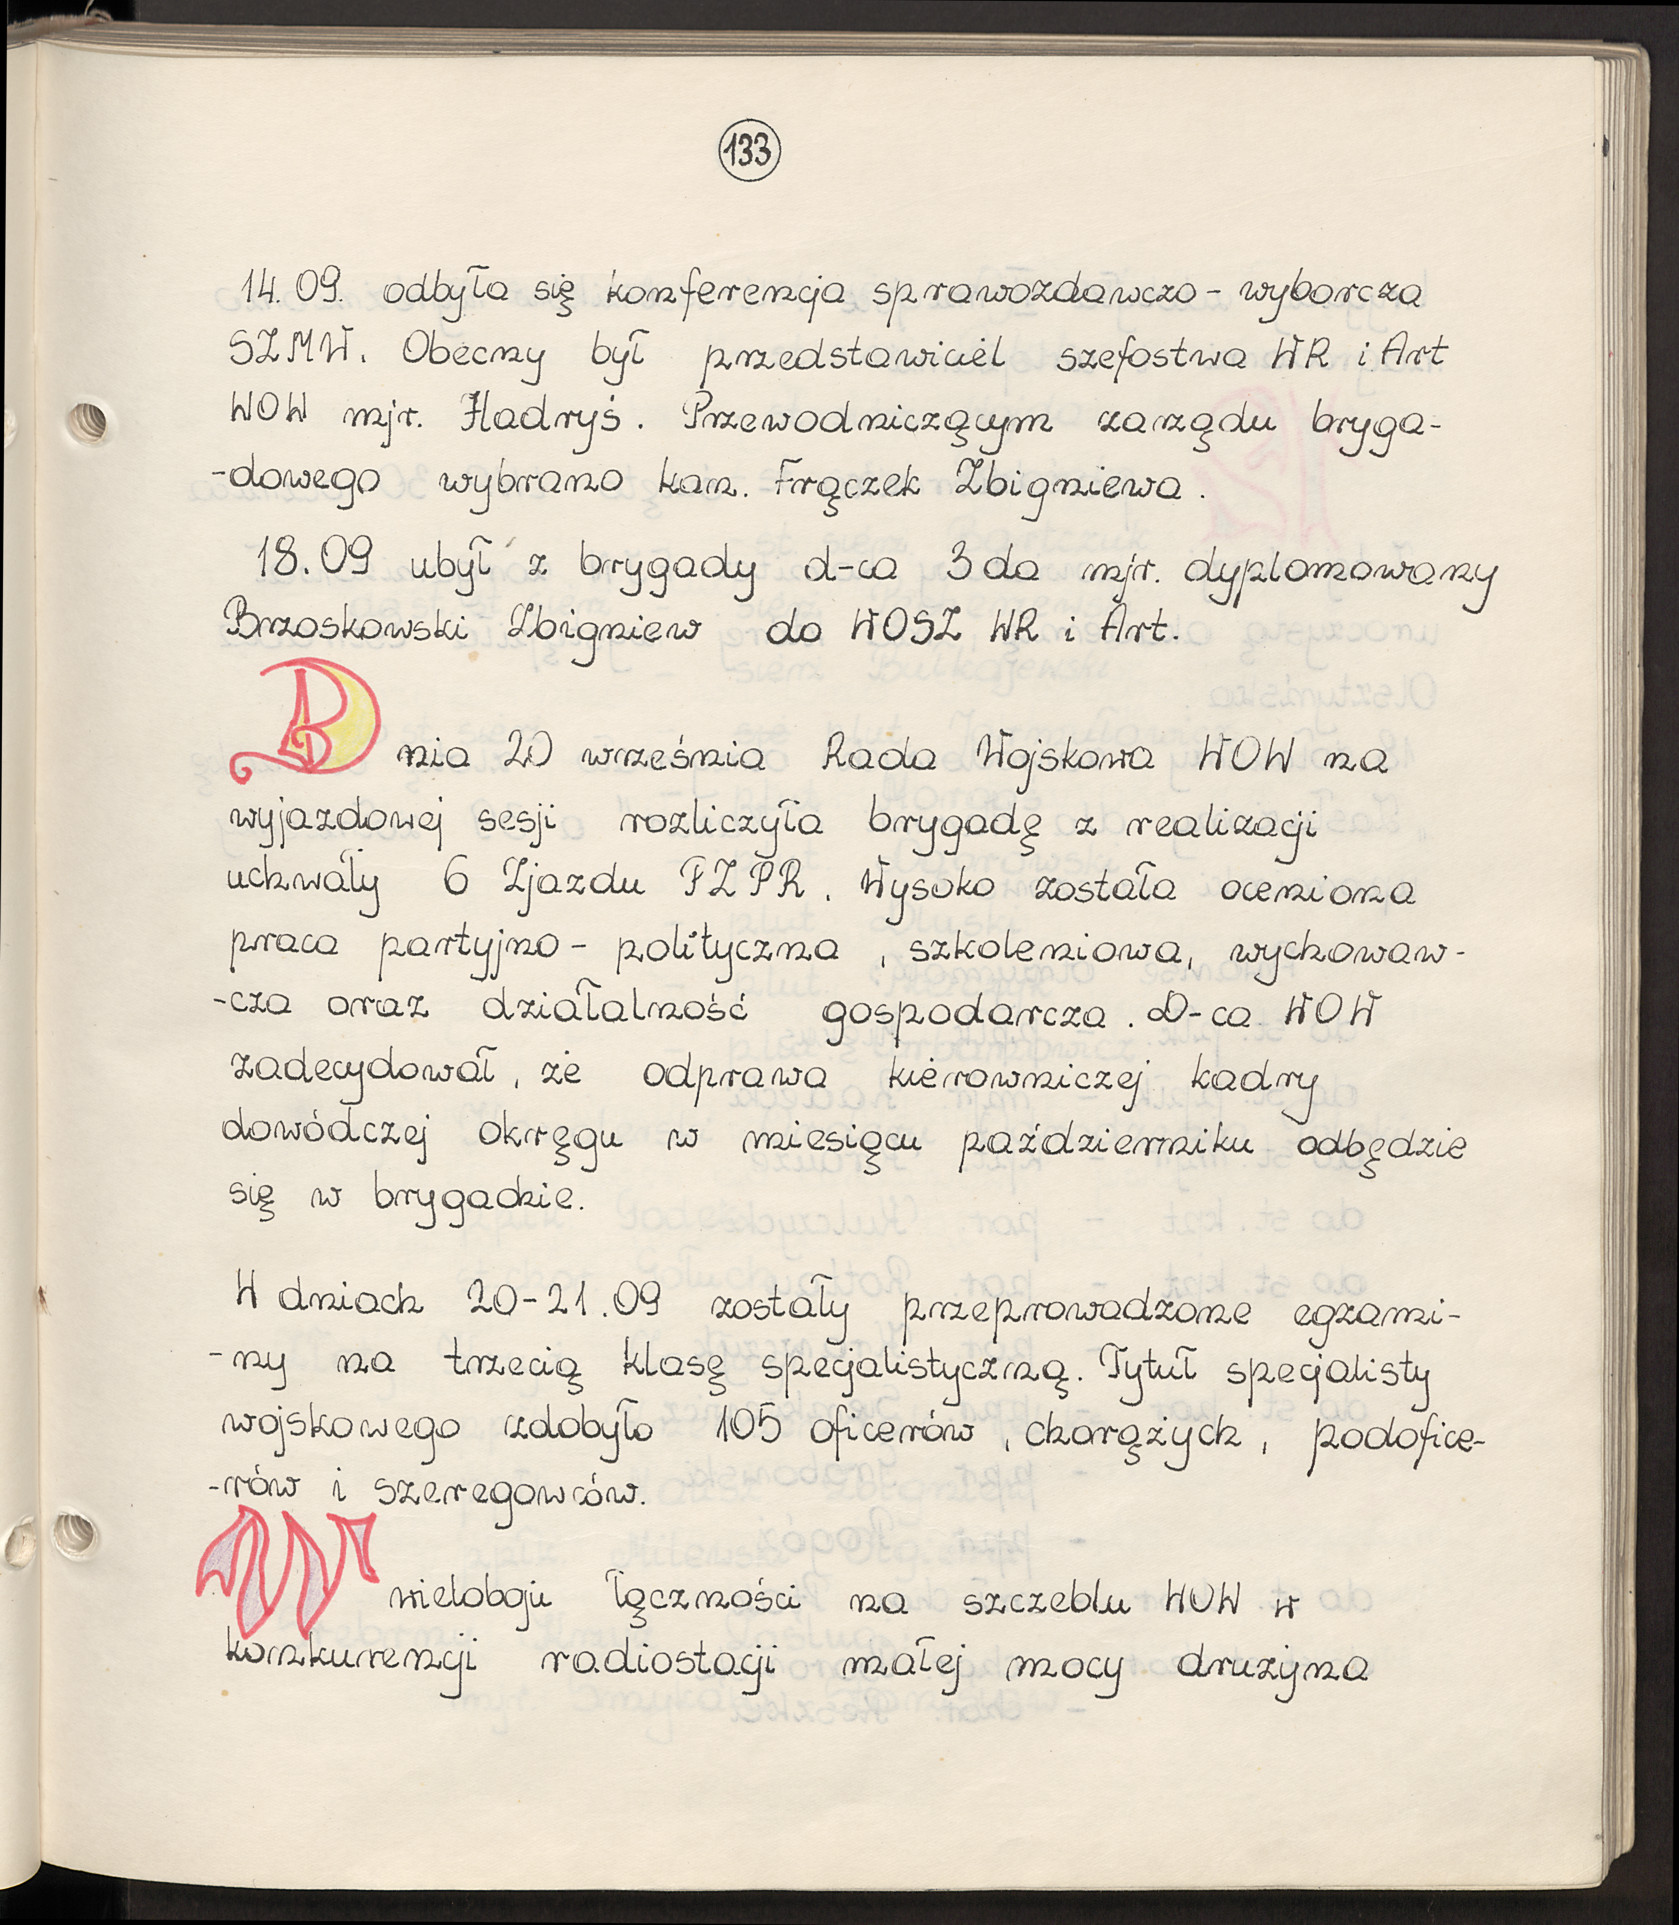 133
14.09. odbyła się konferencja sprawozdawczo - wyborcza
SZMW. Obecny był przedstawiciel szefostwa WR i Art
WOW mjr. Hadryś. Przewodniczącym zarządu bryga-
-dowego wybrano kan. Frączek Zbigniewa.
18.09 ubył z brygady d-ca 3 da mjr. dyplomowany
Brzoskowski Zbigniew do WOSZ WR i Art.
Dnia 20 września Rada Wojskowa WOW na
wyjazdowej sesji rozliczyła brygadę z realizacji
uchwały 6 Zjazdu PZPR. Wysoko została oceniona
praca partyjno - polityczna, szkoleniowa, wychowaw-
-cza oraz działalność gospodarcza. D-ca WOW
zadecydował, że odprawa kierowniczej kadry
dowódczej okręgu w miesiącu październiku odbędzie
się w brygadzie.
W dniach 20-21.09 zostały przeprowadzone egzami-
-ny na trzecią klasę specjalistyczną. Tytuł specjalisty
wojskowego zdobyło 105 oficerów, chorążych, podofice-
-rów i szeregowców.
W wieloboju łączności na szczeblu WOW w
konkurencji radiostacji małej mocy drużyna